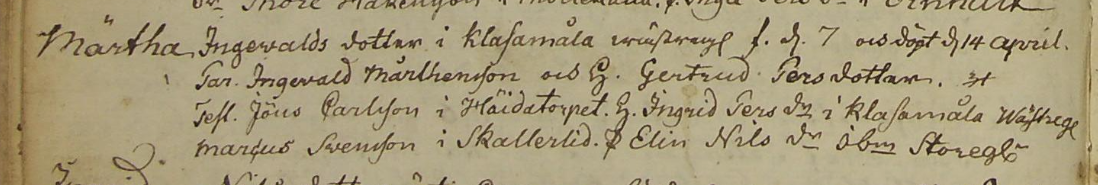 Thore Håkenson i
Märtha Ingevalds dotter i Klasamåla f. d. 7 och döpt d 14 april.
Par. Ingevald Mårthenson och H. Gertrud Pers dotter.
Test. Jöns Carlson i Häidatorpet. H. Ingrid Pers dr i Klasamåla Wästregl
Marcus Svenson i Skallerlid. P Elin Nils dr ibm Storegl